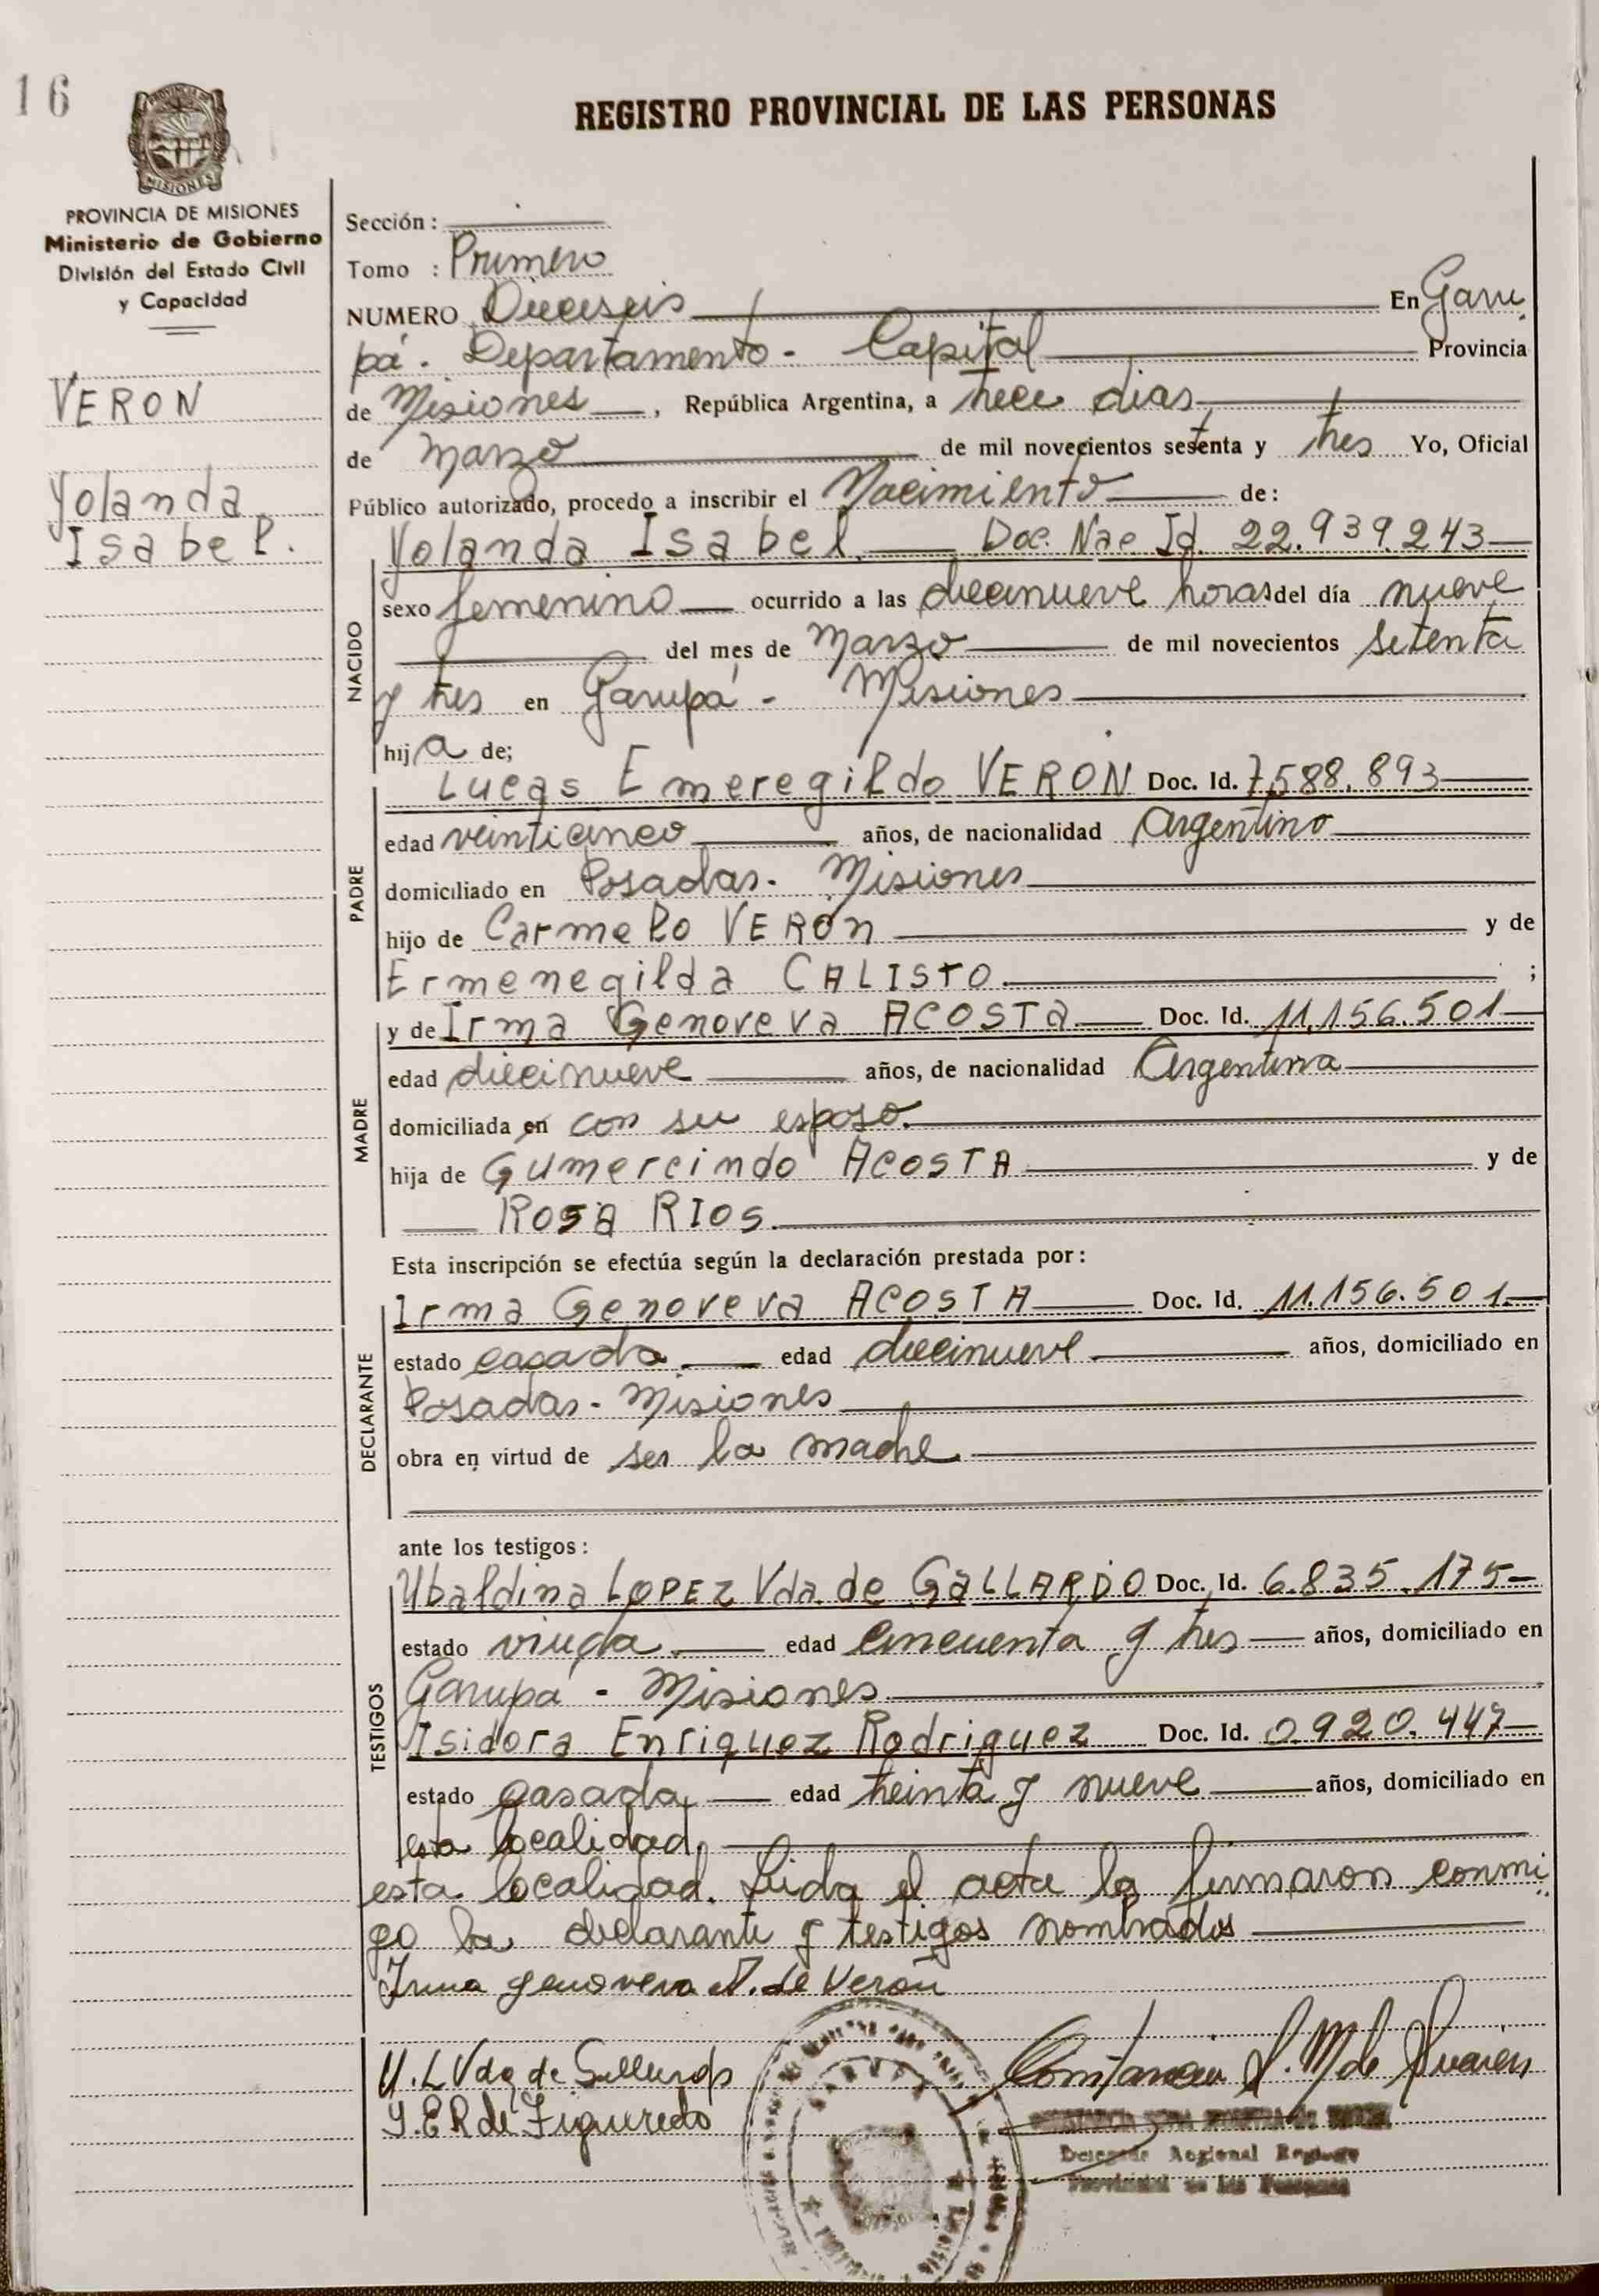 16
REGISTRO PROVINCIAL DE LAS PERSONAS
MISIONES
PROVINCIA DE MISIONES
Ministerio de Gobierno
División del Estado Civil
y Capacidad
VERON
Yolanda
Isabel.
Sección :
Tomo : Primero
NUMERO Dieciseis En Garu
pá. Departamento - Capital Provincia
de Misiones , República Argentina, a trece dias
de Marzo de mil novecientos setenta y tres Yo, Oficial
Público autorizado, procedo a inscribir el Nacimiento de:
Yolanda Isabel. Doc. Nac Id. 22.939.243
NACIDO
sexo femenino ocurrido a las diecinueve horas del día nueve
del mes de Marzo de mil novecientos setenta
y tres en Garupá - Misiones
hija de;
Lucas Emeregildo VERON Doc. Id. 7.588.893
PADRE
edad veinticinco años, de nacionalidad Argentino
domiciliado en Posadas. Misiones
hijo de Carmelo VERON y de
Ermenegilda CALISTO. ;
y de Irma Genoveva ACOSTA Doc. Id. 11.156.501
MADRE
edad diecinueve años, de nacionalidad Argentina
domiciliada en con su esposo.
hija de Gumercindo ACOSTA y de
ROSA RIOS.
Esta inscripción se efectúa según la declaración prestada por:
Irma Genoveva ACOSTA Doc. Id. 11.156.501.
DECLARANTE
estado casada edad diecinueve años, domiciliado en
Posadas - Misiones
obra en virtud de ser la madre
ante los testigos:
Ubaldina LOPEZ Vda. de GALLARDO Doc. Id. 6.835.175
TESTIGOS
estado viuda edad cincuenta y tres años, domiciliado en
Garupá - Misiones
Isidora Enriquez Rodriguez Doc. Id. 0.920.447
estado casada edad treinta y nueve años, domiciliado en
esta localidad.
esta localidad. Leida el acta la firmaron conmi
go la declarante y testigos nombrados
Irma genoveva A. de Veron
U. L Vda de Gallardo
I. E R de Figueredo
Constancia S. M de
Delegada Regional Registro
Provincial de las Personas